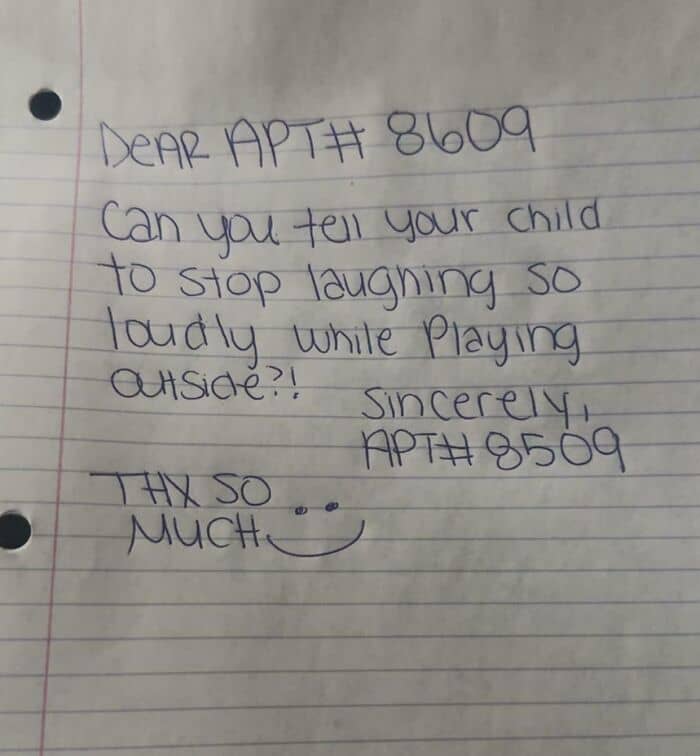 DeAR APT# 8609
Can you tell your child
to stop laughing so
loudly while Playing
outside?!
Sincerely,
APT# 8509
THX SO
MUCH